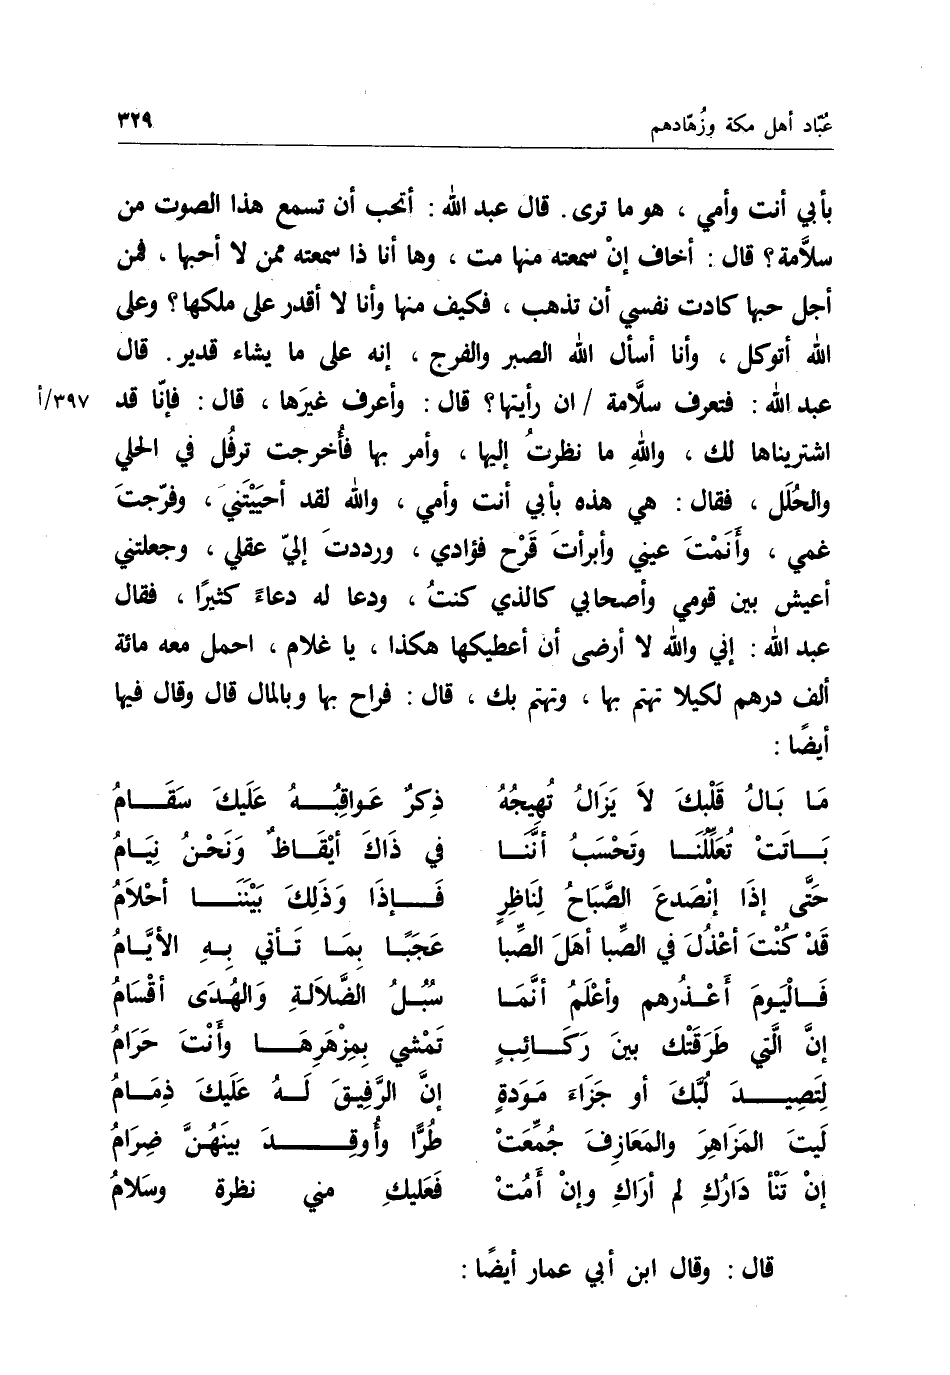 عُبّاد أهل مكة وزُهّادهم ٣٢٩
بأبي أنت وأمي ، هو ما ترى . قال عبد الله : أتحب أن تسمع هذا الصوت من
سلاَّمة ؟ قال : أخاف إنْ سمعته منها مت ، وها أنا ذا سمعته ممن لا أحبها ، فمن
أجل حبها كادت نفسي أن تذهب ، فكيف منها وأنا لا أقدر على ملكها ؟ وعلى
الله أتوكل ، وأنا أسأل الله الصبر والفرج ، إنه على ما يشاء قدير . قال
عبد الله : فتعرف سلاَّمة / ان رأيتها ؟ قال : وأعرف غيرَها ، قال : فإنّا قد ٣٩٧/أ
اشتريناها لك ، واللهِ ما نظرتُ إليها ، وأمر بها فأُخرجت ترفُل في الحلي
والحُلَل ، فقال : هي هذه بأبي أنت وأمي ، والله لقد أحيَيْتَنيَ ، وفرّجتَ
غمي ، وأَنَمْتَ عيني وأبرأتَ قَرْح فؤادي ، ورددتَ إليّ عقلي ، وجعلتني
أعيش بين قومي وأصحابي كالذي كنتُ ، ودعا له دعاءً كثيرًا ، فقال
عبد الله : إني والله لا أرضى أن أعطيكها هكذا ، يا غلام ، احمل معه مائة
ألف درهم لكيلا تهتم بها ، وتهتم بك ، قال : فراح بها وبالمال قال وقال فيها
أيضًا :
مَا بَالُ قَلْبكَ لاَ يَزَالُ تُهِيجُهُ ذِكرٌ عَواقِبُهُ عَلَيكَ سَقَامُ
بَاتَتْ تُعَلِّلُنَا وتَحْسَبُ أنَّنَا في ذَاكَ أيْقَاظٌ وَنَحْنُ نِيَامُ
حَتَّى إذَا إنْصَدعَ الصَّبَاحُ لِنَاظِرٍ فَإذَا وَذَلِكَ بَيْنَنَا أحْلاَمُ
قَدْ كُنْتَ أعْذُلَ في الصِّبا أهَلَ الصِّبا عَجَبًا بِمَا تَأتي بِهِ الأيَّامُ
فَالْيومَ أَعْذُرهم وأعْلَمُ أنَّمَا سُبُلُ الضَّلالةِ وَالهُدَى أقْسَامُ
إنَّ الَّتي طَرَقَتْك بينَ رَكَائِبٍ تَمْشي بِمِزْهَرِهَا وأَنْتَ حَرَامُ
لِتَصِيدَ لُبَّكَ أو جَزَاءَ مَودَةٍ إنَّ الرَّفِيقَ لَهُ عَلَيكَ ذِمَامُ
لَيتَ المَزَاهِرَ والمَعَازِفَ جُمِّعَتْ طُرًّا وأُوقِدَ بينَهُنَّ ضِرَامُ
إنْ تَنْأ دَارُكِ لم أرَاكِ وإنْ أَمُتْ فَعَليكِ مني نظرة وسَلامُ
قال : وقال ابن أبي عمار أيضًا :